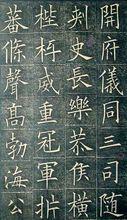 開府儀同三司随
刺史長樂恭侯橫
梐枑威重冠軍折
蕃條聲高勃海公